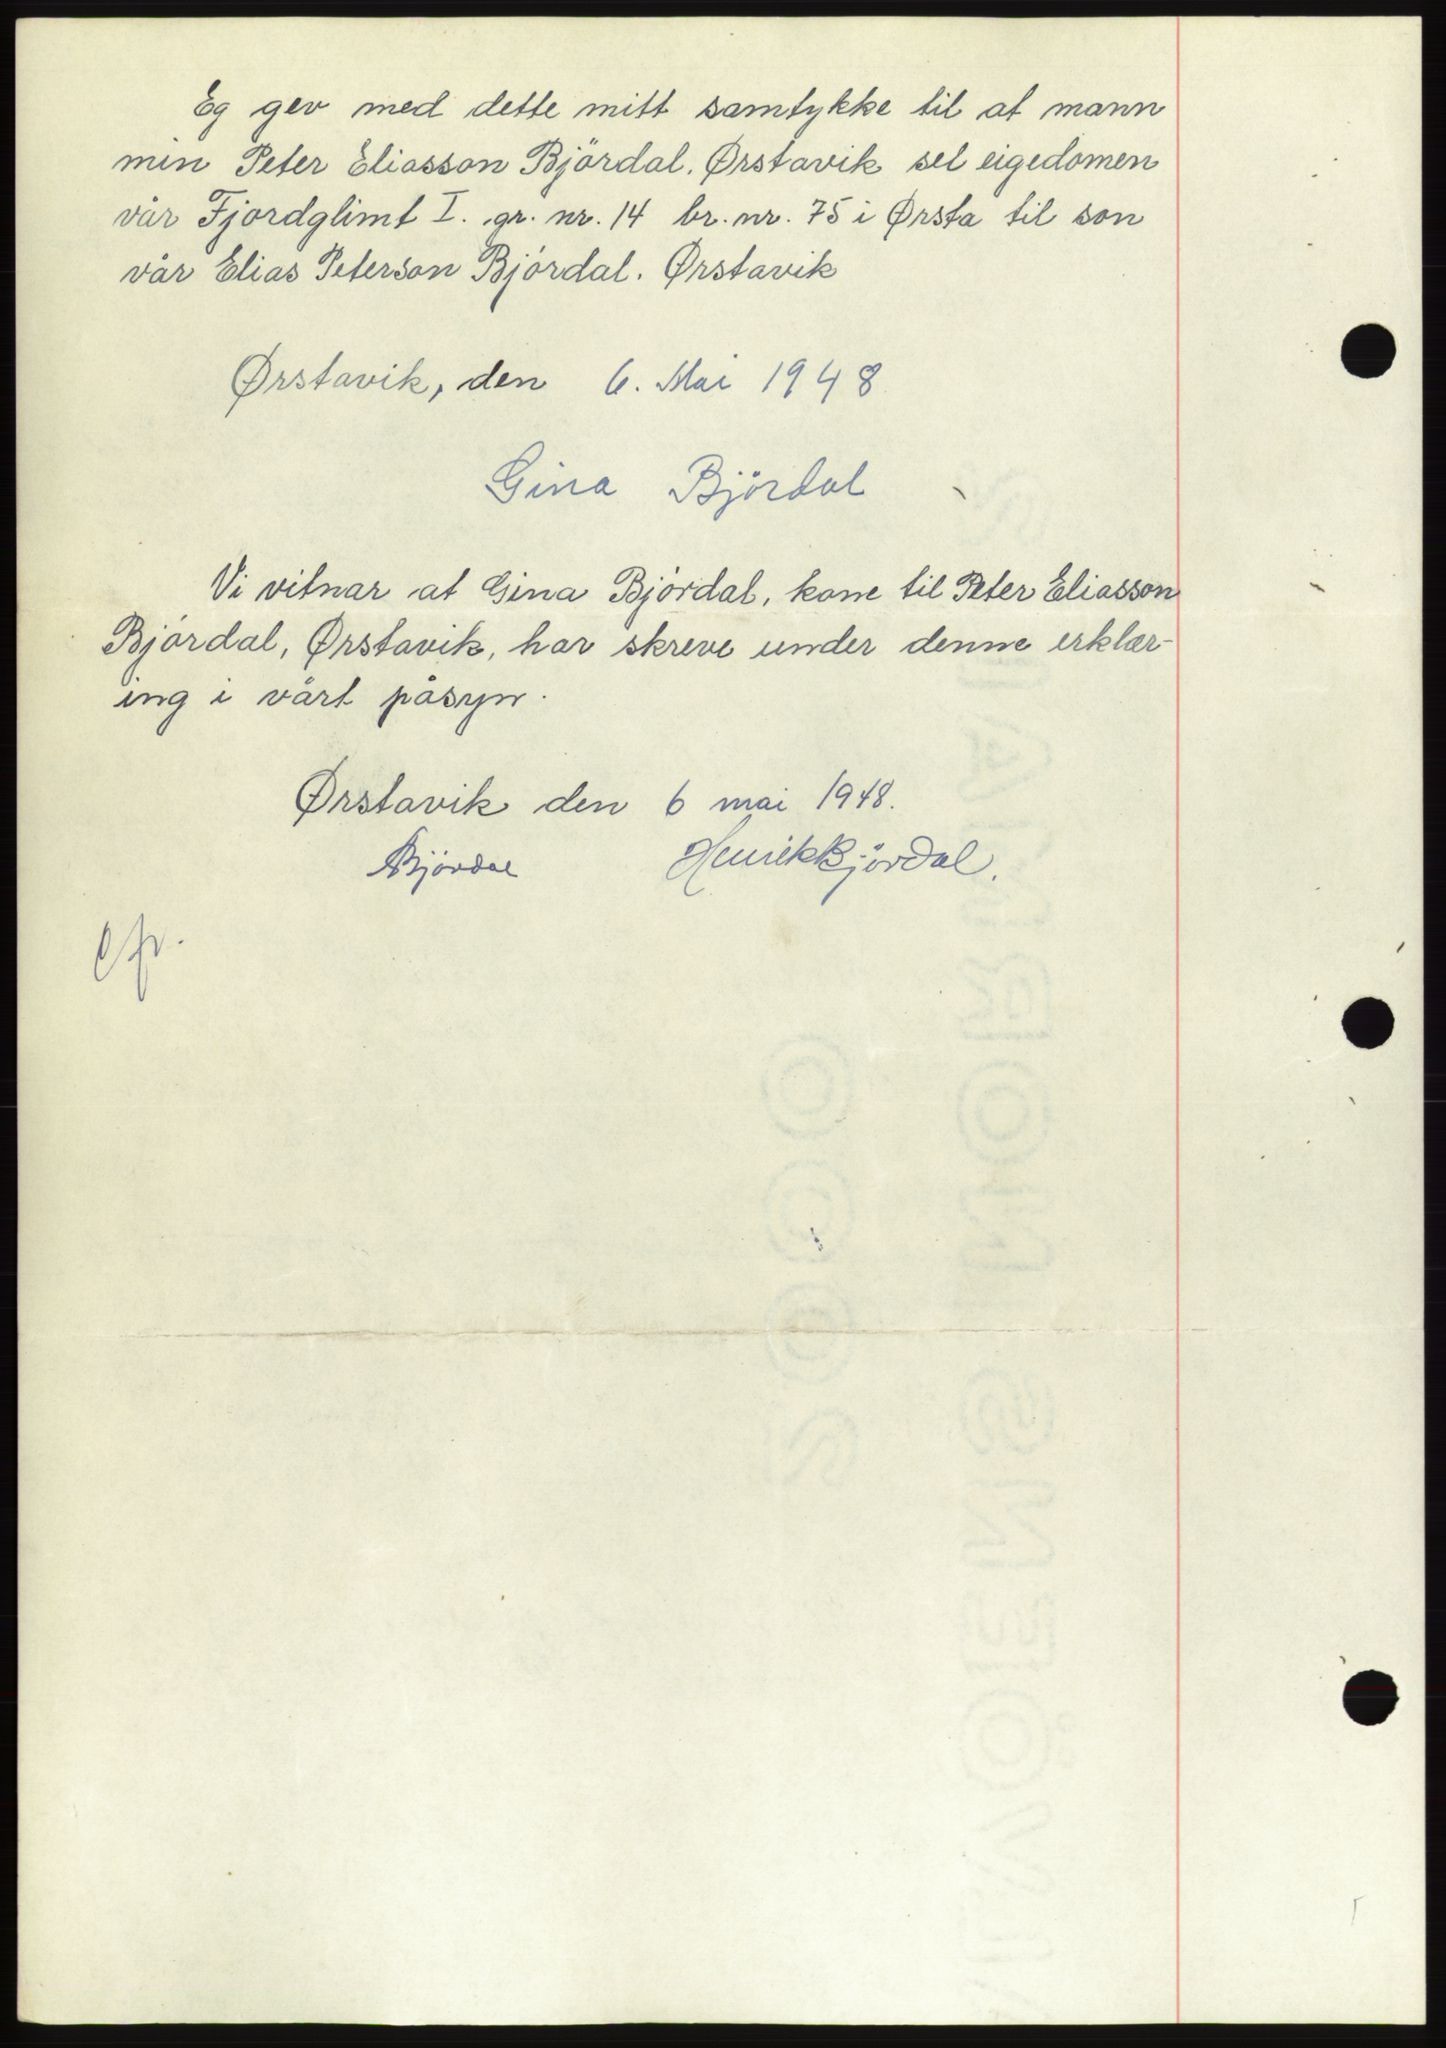 Eg gev med dette mitt samtykke til at mann
min Peter Eliasson Björdal. Ørstavik sel eigedomen
vår Fjordglimt I. gr. nr. 14 br. nr. 75 i Ørsta til son
vår Elias Peterson Bjórdal. Ørstavik
Ørstavik, den 6. Mai 1948
Gina Björdal
Vi vitnar at Gina Bjórdal, kone til Peter Eliasson
Bjórdal, Ørstavik, har skreve under denne erklær-
ing i vårt påsyn.
Ørstavik den 6 mai 1948.
Bjørdal Henrik Bjørdal.